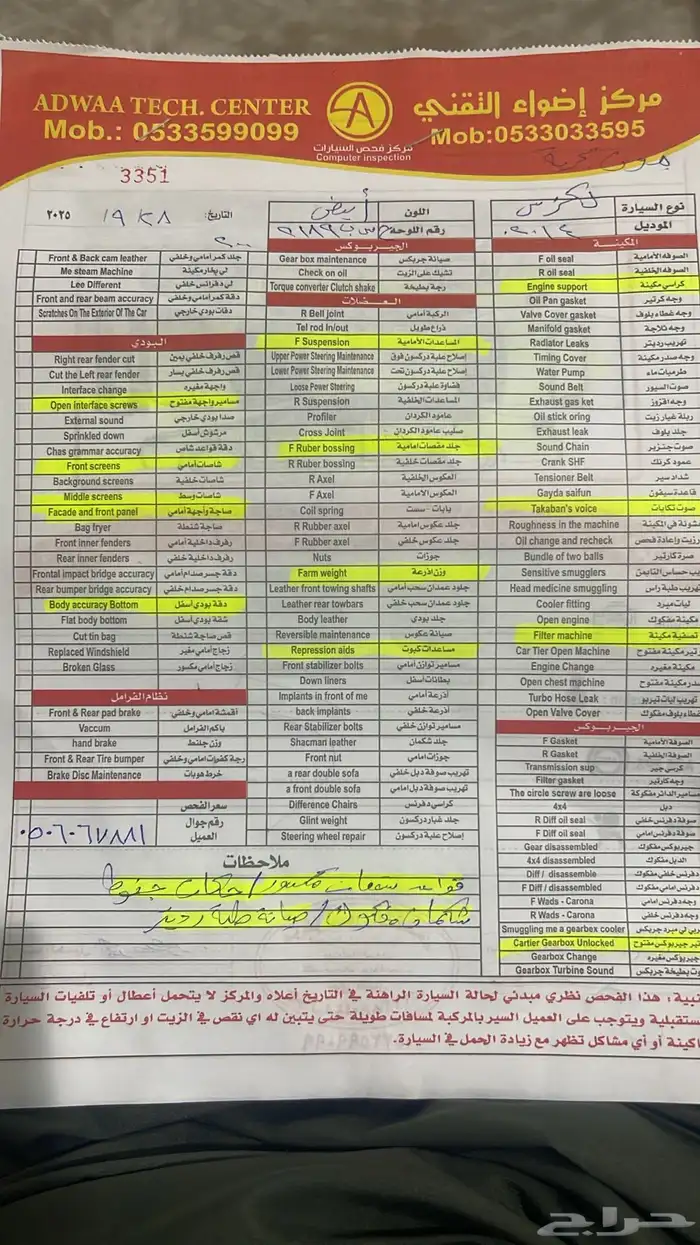 ADWAA TECH. CENTER
Mob.: 0533599099
مركز إضواء التقني
Mob:0533033595
مركز فحص السيارات
Computer inspection
3351
نوع السيارة لكزس
الموديل
اللون أبيض
رقم اللوحة
التاريخ: ٢٠٢٥
Front & Back cam leather جلد كمر امامي وخلفي
Me steam Machine لي بخار مكينة
Lee Different لي دفرانس خلفي
Front and rear beam accuracy دقة كمر امامي وخلفي
Scratches On The Exterior Of The Car دقات بودي خارجي
البودي
Right rear fender cut قص رفرف خلفي يمين
Cut the Left rear fender قص رفرف خلفي يسار
Interface change واجهة مغيره
Open interface screws مسامير واجهة مفتوح
External sound صدا بودي خارجي
Sprinkled down مرشوش أسفل
Chas grammar accuracy دقة قواعد شاص
Front screens شاصات امامي
Background screens شاصات خلفية
Middle screens شاصات وسط
Facade and front panel صاجة واجهة أمامي
Bag fryer صاجة شنطة
Front inner fenders رفرف داخلية أمامي
Rear inner fenders رفرف داخلية خلفي
Frontal impact bridge accuracy دقة جسر صدام امامي
Rear bumper bridge accuracy دقة جسر صدام خلفي
Body accuracy Bottom دقة بودي أسفل
Flat body bottom شقة بودي أسفل
Cut tin bag قص صاجة شنطة
Replaced Windshield زجاج أمامي مغير
Broken Glass زجاج أمامي مكسور
نظام الفرامل
Front & Rear pad brake أقمشة امامي وخلفي
Vaccum باكم الفرامل
hand brake وزن جلنط
Front & Rear Tire bumper رجة كفرات امامي وخلفي
Brake Disc Maintenance خرط هوبات
سعر الفحص
رقم جوال العميل ٠٥٠٦٠٦٧٨٨١
الجيربوكس
Gear box maintenance صيانة جربكس
Check on oil تشيك على الزيت
Torque converter Clutch shake رجة بطيخة
العضلات
R Bell joint الركبة امامي
Tel rod In/out ذراع طويل
F Suspension المساعدات الأمامية
Upper Power Steering Maintenance إصلاح علبة دركسون فوق
Lower Power Steering Maintenance إصلاح علبة دركسون تحت
Loose Power Steering فضاوة علبة دركسون
R Suspension المساعدات الخلفية
Profiler عامود الكردان
Cross Joint صليب عامود الكردان
F Ruber bossing جلد مقصات امامية
R Ruber bossing جلد مقصات خلفية
R Axel العكوس الخلفية
F Axel العكوس الامامية
Coil spring يايات - سست
R Rubber axel جلد عكوس امامية
F Rubber axel جلد عكوس خلفي
Nuts جوزات
Farm weight وزن اذرعة
Leather front towing shafts جلود عمدان سحب أمامي
Leather rear towbars جلود عمدان سحب خلفي
Body leather جلد بودي
Reversible maintenance صيانة عكوس
Repression aids مساعدات كبوت
Front stabilizer bolts مسامير توازن أمامي
Down liners بطانات أسفل
Implants in front of me أذرعة أمامي
back implants أذرعة خلفي
Rear Stabilizer bolts مسامير توازن خلفي
Shacman leather جلد شكمان
Front nut جوزات امامي
a rear double sofa تهريب صوفة دبل خلفي
a front double sofa تهريب صوفة دبل امامي
Difference Chairs كراسي دفرنس
Glint weight جلد غبار دركسون
Steering wheel repair إصلاح علبة دركسون
المكينة
F oil seal الصوفة الأمامية
R oil seal الصوفة الخلفية
Engine support كراسي مكينة
Oil Pan gasket وجه كرتير
Valve Cover gasket وجه غطاء بلوف
Manifold gasket وجه ثلاجة
Radiator Leaks تهريب رديتر
Timing Cover وجه صدر مكينة
Water Pump طرمبات ماء
Sound Belt صوت السيور
Exhaust gas ket وجه افزوز
Oil stick oring ربلة غيار زيت
Exhaust leak جلد بلوف
Sound Chain صوت جنزير
Crank SHF عمود كرنك
Tensioner Belt شداد سير
Gayda saifun قاعدة سيفون
Takaban's voice صوت تكايات
Roughness in the machine
Oil change and recheck
Bundle of two balls صرة كارتير
Sensitive smugglers
Head medicine smuggling تهريب طبة راس
Cooler fitting ليات مبرد
Open engine مكينة مفكوك
Filter machine تصفية مكينة
Car Tier Open Machine
Engine Change مكينة مغيره
Open chest machine
Turbo Hose Leak تهريب ليات تيربو
Open Valve Cover
الجيربوكس
F Gasket الصوفة الأمامية
R Gasket الصوفة الخلفية
Transmission sup كرسي جير
Filter gasket وجه كرتير
The circle screw are loose مسامير الدائر مفكوكة
4x4 دبل
R Diff oil seal صوفة دفرنس خلفي
F Diff oil seal صوفة دفرنس امامي
Gear disassembled جيربوكس مفكوك
4x4 disassembled الدبل مفكوك
Diff / disassemble دفرنس خلفي مفكوك
F Diff / disassembled دفرنس امامي مفكوك
F Wads - Carona وجه دفرنس أمامي
R Wads - Carona وجه دفرنس خلفي
Smuggling me a gearbex cooler
Cartier Gearbox Unlocked
Gearbox Change جيربوكس مغيره
Gearbox Turbine Sound
ملاحظات
قواعد مكسور
شكمان مفكوك / صيانة
هذا الفحص نظري مبدئي لحالة السيارة الراهنة في التاريخ أعلاه والمركز لا يتحمل أعطال أو تلفيات السيارة
ويتوجب على العميل السير بالمركبة لمسافات طويلة حتى يتبين له اي نقص في الزيت او ارتفاع في درجة حرارة
أو أي مشاكل تظهر مع زيادة الحمل في السيارة.
حراج